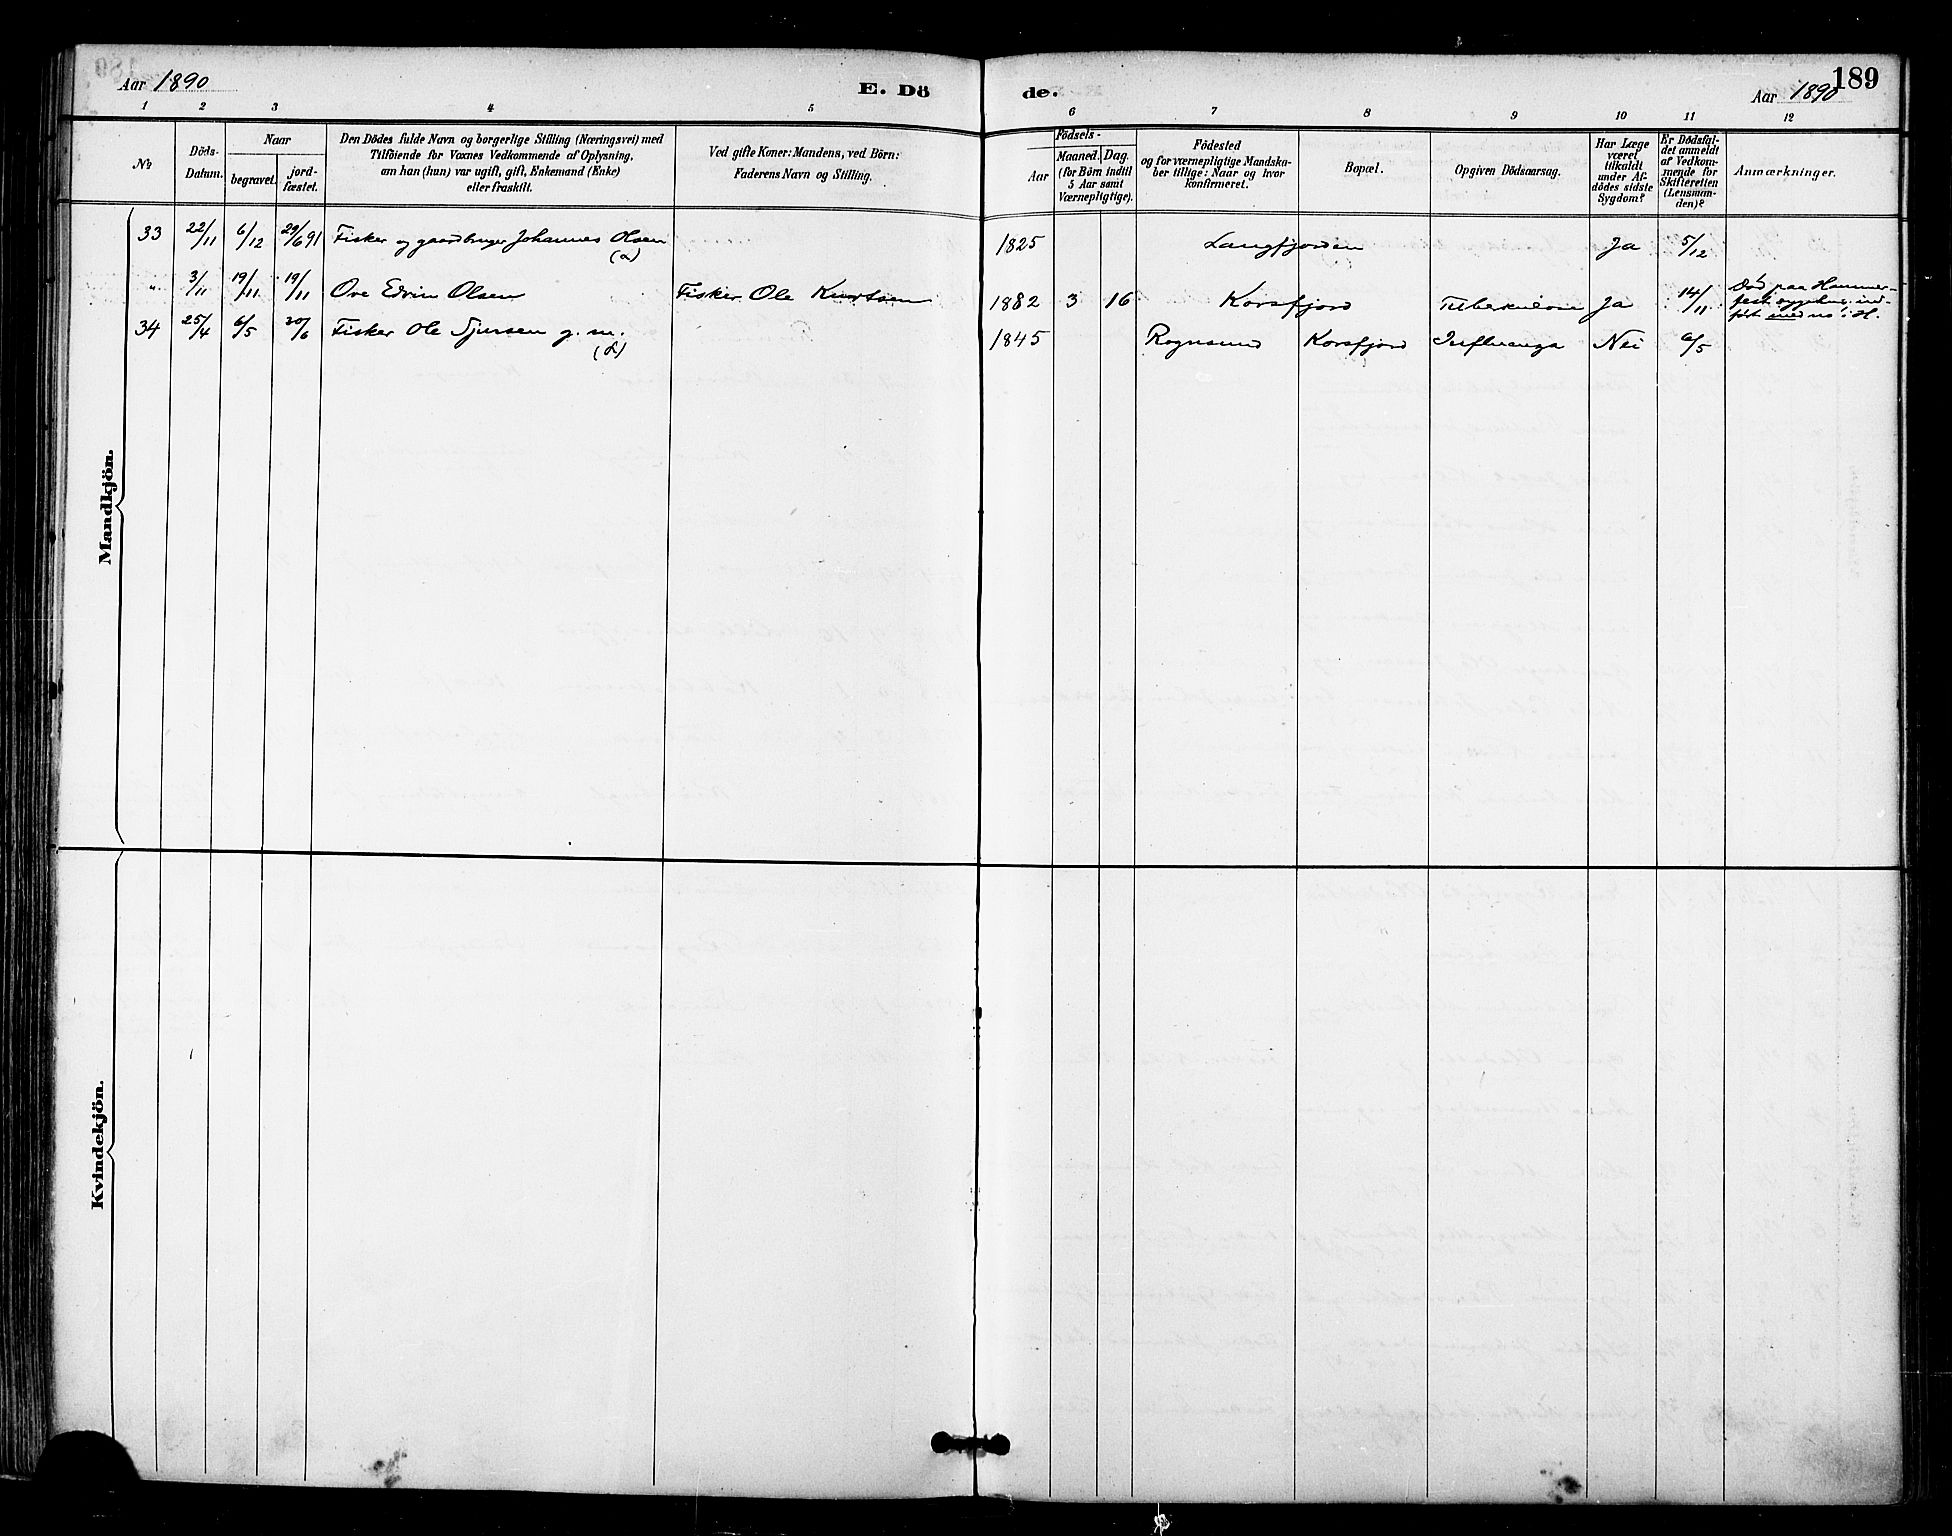 Aar 1890
E. Dö
de.
189
Aar 1890
1 2 3 4 5 6 7 8 9 10 11 12
No
Döds-
Datum.
Naar
begravet.
jord-
fæstet.
Den Dödes fulde Navn og borgerlige Stilling (Næringsvei) med
Tilföiende for Voxnes Vedkommende af Oplysning,
om han (hun) var ugift, gift, Enkemand (Enke)
eller fraskilt.
Ved gifte Koner: Mandens, ved Börn:
Faderens Navn og Stilling.
Födsels-
Aar
Maaned. Dag.
(for Börn indtil
5 Aar samt
Værnepligtige).
Födested
og for værnepligtige Mandska-
ber tillige: Naar og hvor
konfirmeret.
Bopæl.
Opgiven Dödsaarsag.
Har Læge
været
tilkaldt
under Af-
dödes sidste
Sygdom?
Er Dödsfal-
det anmeldt
af Vedkom-
mende for
Skifteretten
(Lensman-
den)?
Anmærkninger.
Mandkjön.
33 22/11 6/12 29/6 91 Fisker og gaardbruger Johannes Olsen 1825 Langfjorden Ja 5/12
" 3/11 19/11 19/11 Ove Edvin Olsen Fisker Ole Kurtsen 1882 3 16 Korsfjord Tuberkulose Ja 14/11 Död paa Hammer-
fest sygehus, ind-
fört med no i H.
34 25/4 6/5 30/6 Fisker Ole Sjursen g. m. 1845 Rognsund Korsfjord Influenza Nei 6/5
Kvindekjön.